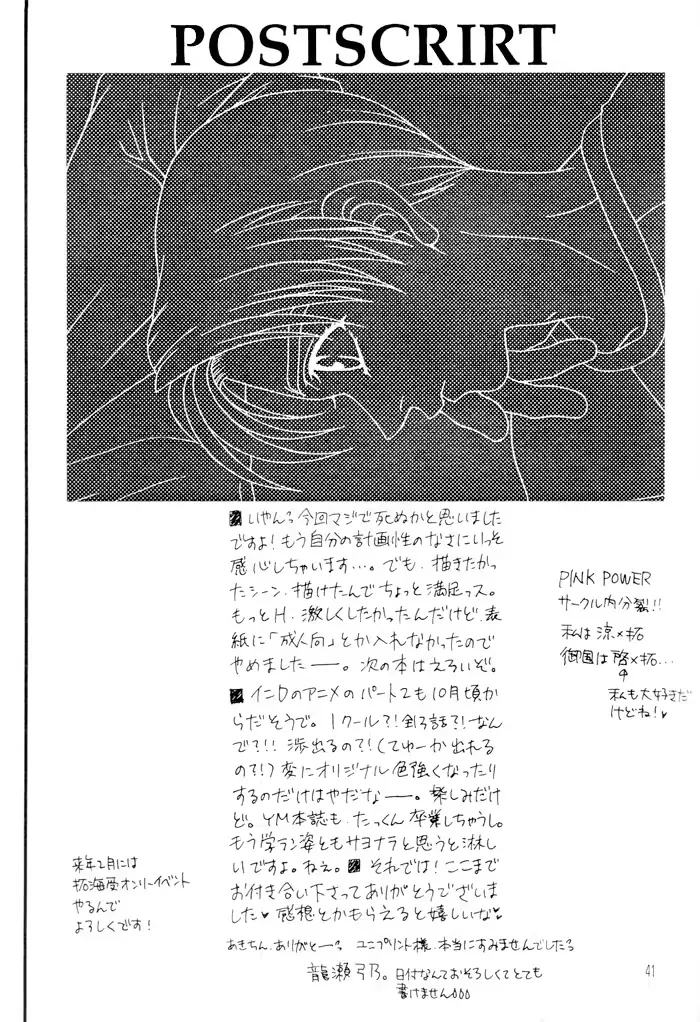 POSTSCRIRT
いやんっ今回マジで死ぬかと思いました
ですよ!もう自分の計画性のなさにいっそ
感心しちゃいます…。でも、描きたかっ
たシーン、描けたんでちょっと満足っス。
もっとH、激しくしたかったんだけど、表
紙に「成人向」とか入れなかったので
やめました──。次の本はえろいぞ。
イニDのアニメのパート2も10月頃か
らだそうで。1クール?!全13話?!なん
で?!!渉出るの?!(てゆーか出れる
の?!)変にオリジナル色強くなったり
するのだけはやだな──。楽しみだけ
ど。YM本誌も、たっくん卒業しちゃうし。
もう学ラン姿ともサヨナラと思うと淋し
いですよ。ねぇ。それでは!ここまで
お付き合い下さってありがとうございま
した♥感想とかもらえると嬉しいな♥
PINK POWER
サークル内分裂!!
私は涼×拓
御国は啓×拓…
私も大好きだ
けどね!♥
来年2月には
拓海受オンリーイベント
やるんで
よろしくです!
あきちん、ありがと──っ ユニプリント様、本当にすみませんでしたっ
龍瀬弓乃。日付なんておそろしくてとても
書けません
41